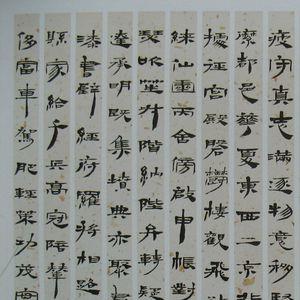 疲守真志滿逐物意移
縻都邑華夏東西二京
據涇宮殿盤鬱樓觀飛
綵仙靈丙舍傍啟甲帳對
瑟吹笙升階納陛弁轉疑
達承明既集墳典亦聚
漆書壁經府羅將相路
縣家給千兵高冠陪輦
侈富車駕肥輕策功茂